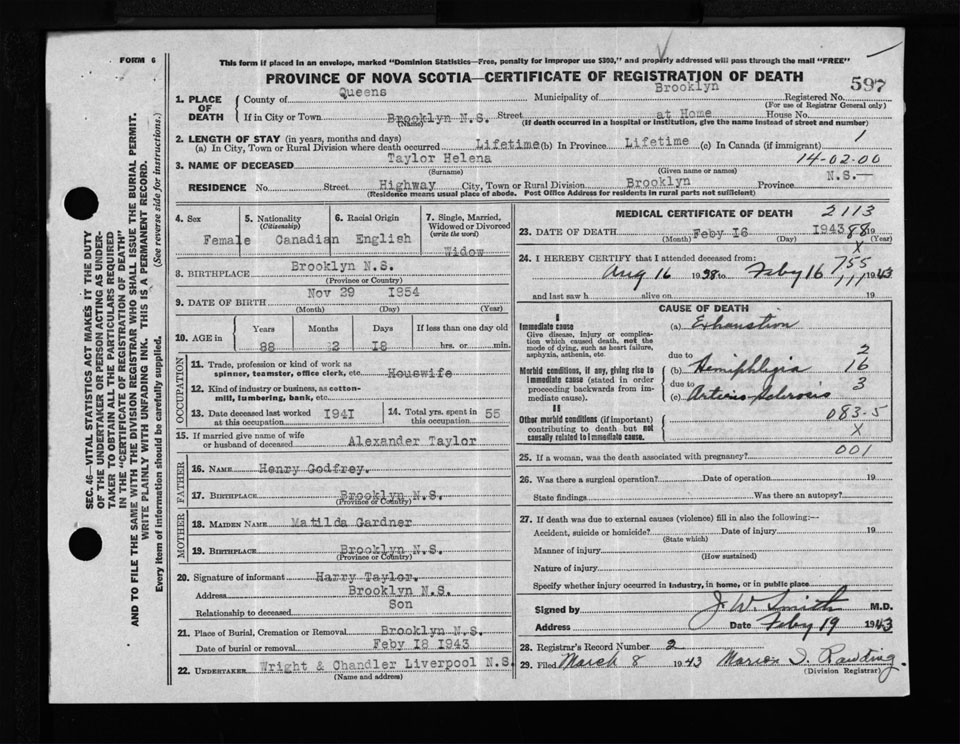 FORM 6
This form if placed in an envelope, marked "Dominion Statistics—Free, penalty for improper use $300," and properly addressed will pass through the mail "FREE"
PROVINCE OF NOVA SCOTIA—CERTIFICATE OF REGISTRATION OF DEATH
597
1. PLACE OF DEATH County of Queens Municipality of Brooklyn Registered No.
(For use of Registrar General only)
If in City or Town Brooklyn N.S. Street at Home House No.
(Name) (If death occurred in a hospital or institution, give the name instead of street and number)
2. LENGTH OF STAY (in years, months and days)
(a) In City, Town or Rural Division where death occurred Lifetime (b) In Province Lifetime (c) In Canada (if immigrant) 1
3. NAME OF DECEASED Taylor Helena 14-02-00
(Surname) (Given name or names)
RESIDENCE No. Street Highway City, Town or Rural Division Brooklyn Province N.S.—
(Residence means usual place of abode. Post Office Address for residents in rural parts not sufficient)
4. Sex Female
5. Nationality (Citizenship) Canadian
6. Racial Origin English
7. Single, Married, Widowed or Divorced (write the word) Widow
8. BIRTHPLACE Brooklyn N.S.
(Province or Country)
9. DATE OF BIRTH Nov 29 1854
(Month) (Day) (Year)
10. AGE in Years Months Days If less than one day old
88 2 18 hrs. or min.
OCCUPATION
11. Trade, profession or kind of work as spinner, teamster, office clerk, etc. Housewife
12. Kind of industry or business, as cotton-mill, lumbering, bank, etc.
13. Date deceased last worked at this occupation 1941
14. Total yrs. spent in this occupation 55
15. If married give name of wife or husband of deceased Alexander Taylor
FATHER
16. NAME Henry Godfrey.
17. BIRTHPLACE Brooklyn N.S.
(Province or Country)
MOTHER
18. MAIDEN NAME Matilda Gardner
19. BIRTHPLACE Brooklyn N.S.
(Province or Country)
20. Signature of informant Harry Taylor.
Address Brooklyn N.S.
Relationship to deceased Son
21. Place of Burial, Cremation or Removal Brooklyn N.S.
Date of burial or removal Feby 18 1943
22. UNDERTAKER Wright & Chandler Liverpool N.S.
(Name and address)
MEDICAL CERTIFICATE OF DEATH 2113
23. DATE OF DEATH Feby 16 1943 88 19
(Month) (Day) (Year)
X
24. I HEREBY CERTIFY that I attended deceased from: 755
Aug 16 1938 to Feby 16 1943
111
and last saw h alive on 19
CAUSE OF DEATH
I
Immediate cause (a) Exhaustion
Give disease, injury or complication which caused death, not the mode of dying, such as heart failure, asphyxia, asthenia, etc.
due to 2
Morbid conditions, if any, giving rise to immediate cause (stated in order proceeding backwards from immediate cause).
(b) Hemiphlegia 16
due to 3
(c) Arterio Sclerosis
II
Other morbid conditions (if important) contributing to death but not causally related to immediate cause.
083-5
X
25. If a woman, was the death associated with pregnancy? 001
26. Was there a surgical operation? Date of operation 19
State findings Was there an autopsy?
27. If death was due to external causes (violence) fill in also the following:—
Accident, suicide or homicide? Date of injury 19
(State which)
Manner of injury
(How sustained)
Nature of injury
Specify whether injury occurred in industry, in home, or in public place
Signed by J. W. Smith M.D.
Address Date Feby 19 1943
28. Registrar's Record Number 2
29. Filed March 8 1943 Marion I. Rawding.
(Division Registrar)
SEC. 46—VITAL STATISTICS ACT MAKES IT THE DUTY
OF THE UNDERTAKER OR PERSON ACTING AS UNDER-
TAKER TO OBTAIN ALL THE PARTICULARS REQUIRED
IN THE "CERTIFICATE OF REGISTRATION OF DEATH"
AND TO FILE THE SAME WITH THE DIVISION REGISTRAR WHO SHALL ISSUE THE BURIAL PERMIT.
WRITE PLAINLY WITH UNFADING INK. THIS IS A PERMANENT RECORD.
Every item of information should be carefully supplied. (See reverse side for instructions.)